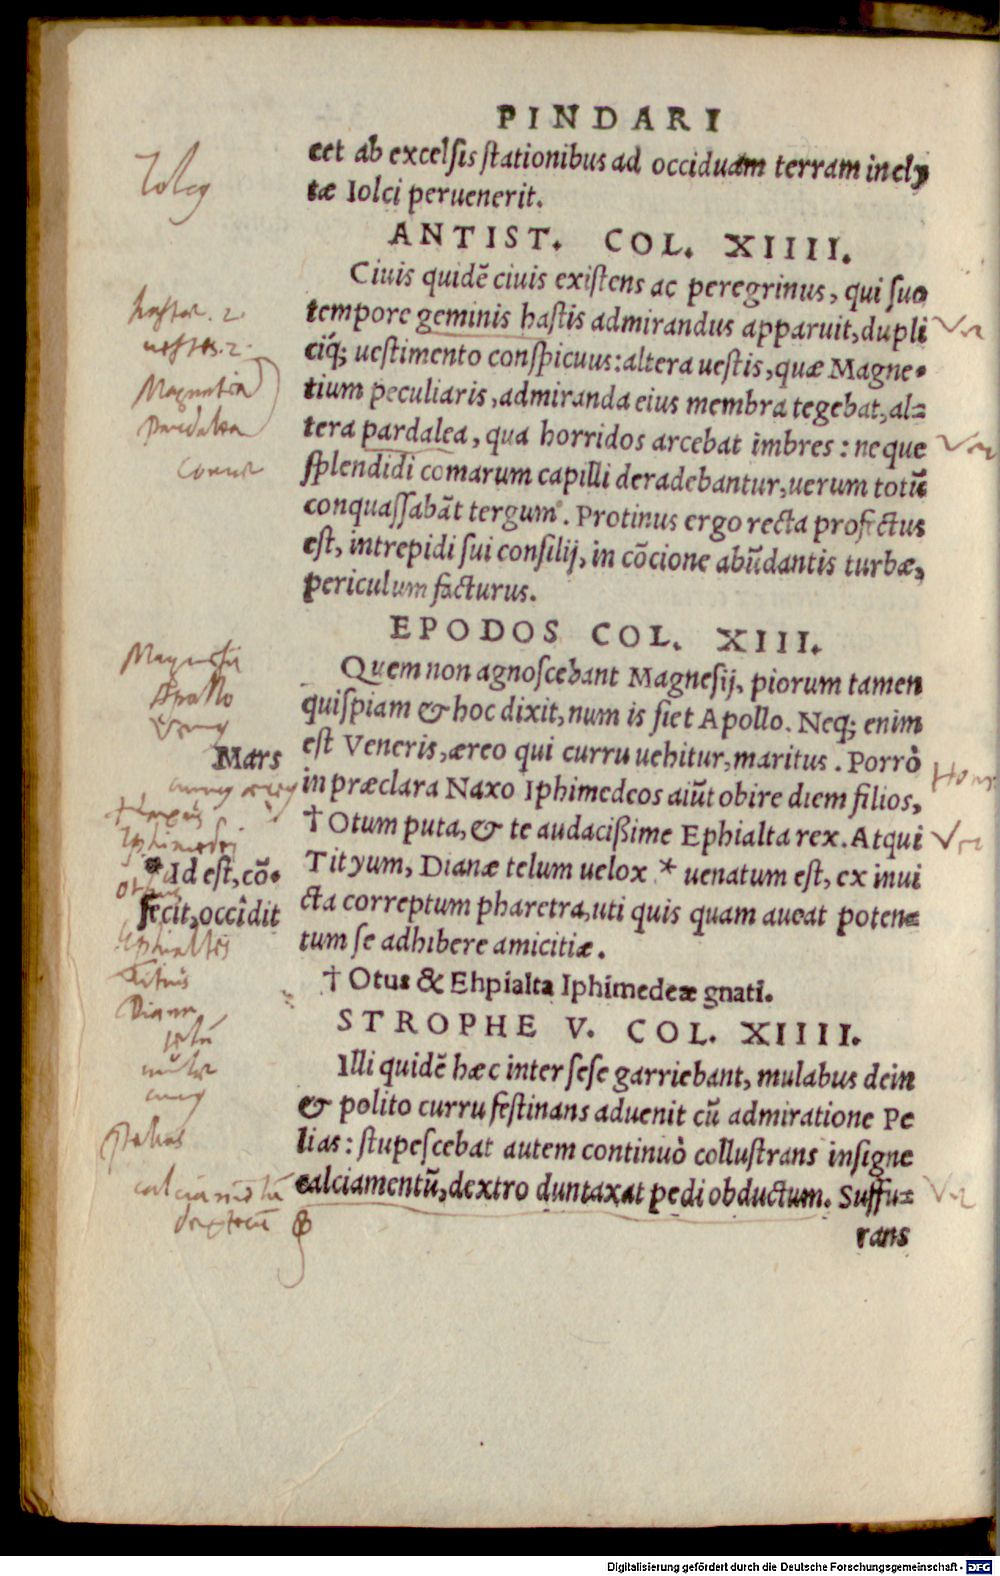 PINDARI
cet ab excelsis stationibus ad occiduam terram incly
tæ Iolci peruenerit.
ANTIST. COL. XIIII.
Ciuis quidē ciuis existens ac peregrinus, qui suo
tempore geminis hastis admirandus apparuit, dupli
ciq́; uestimento conspicuus: altera uestis, quæ Magne-
tium peculiaris, admiranda eius membra tegebat, al-
tera pardalea, qua horridos arcebat imbres: neque
splendidi comarum capilli deradebantur, uerum totū
conquassabāt tergum. Protinus ergo recta profectus
est, intrepidi sui consilij, in cōcione abūdantis turbæ,
periculum facturus.
EPODOS COL. XIII.
Quem non agnoscebant Magnesij, piorum tamen
quispiam & hoc dixit, num is fiet Apollo. Neq; enim
est Veneris, æreo qui curru uehitur, maritus. Porrò
Mars
in præclara Naxo Iphimedeos aiūt obire diem filios,
† Otum puta, & te audacißime Ephialta rex. Atqui
Tityum, Dianæ telum uelox * uenatum est, ex inui
* Id est, cō-
fecit, occîdit
cta correptum pharetra, uti quis quam aueat poten-
tum se adhibere amicitiæ.
† Otus & Ehpialta Iphimedeæ gnati.
STROPHE V. COL. XIIII.
Illi quidē hæc inter sese garriebant, mulabus dein
& polito curru festinans aduenit cū admiratione Pe
lias: stupescebat autem continuò collustrans insigne
calciamentū, dextro duntaxat pedi obductum. Suffu-
rans
Magnesia
Apollo
Otus
Ephialtes
Titius
Diana
calciamētū
Digitalisierung gefördert durch die Deutsche Forschungsgemeinschaft - DFG